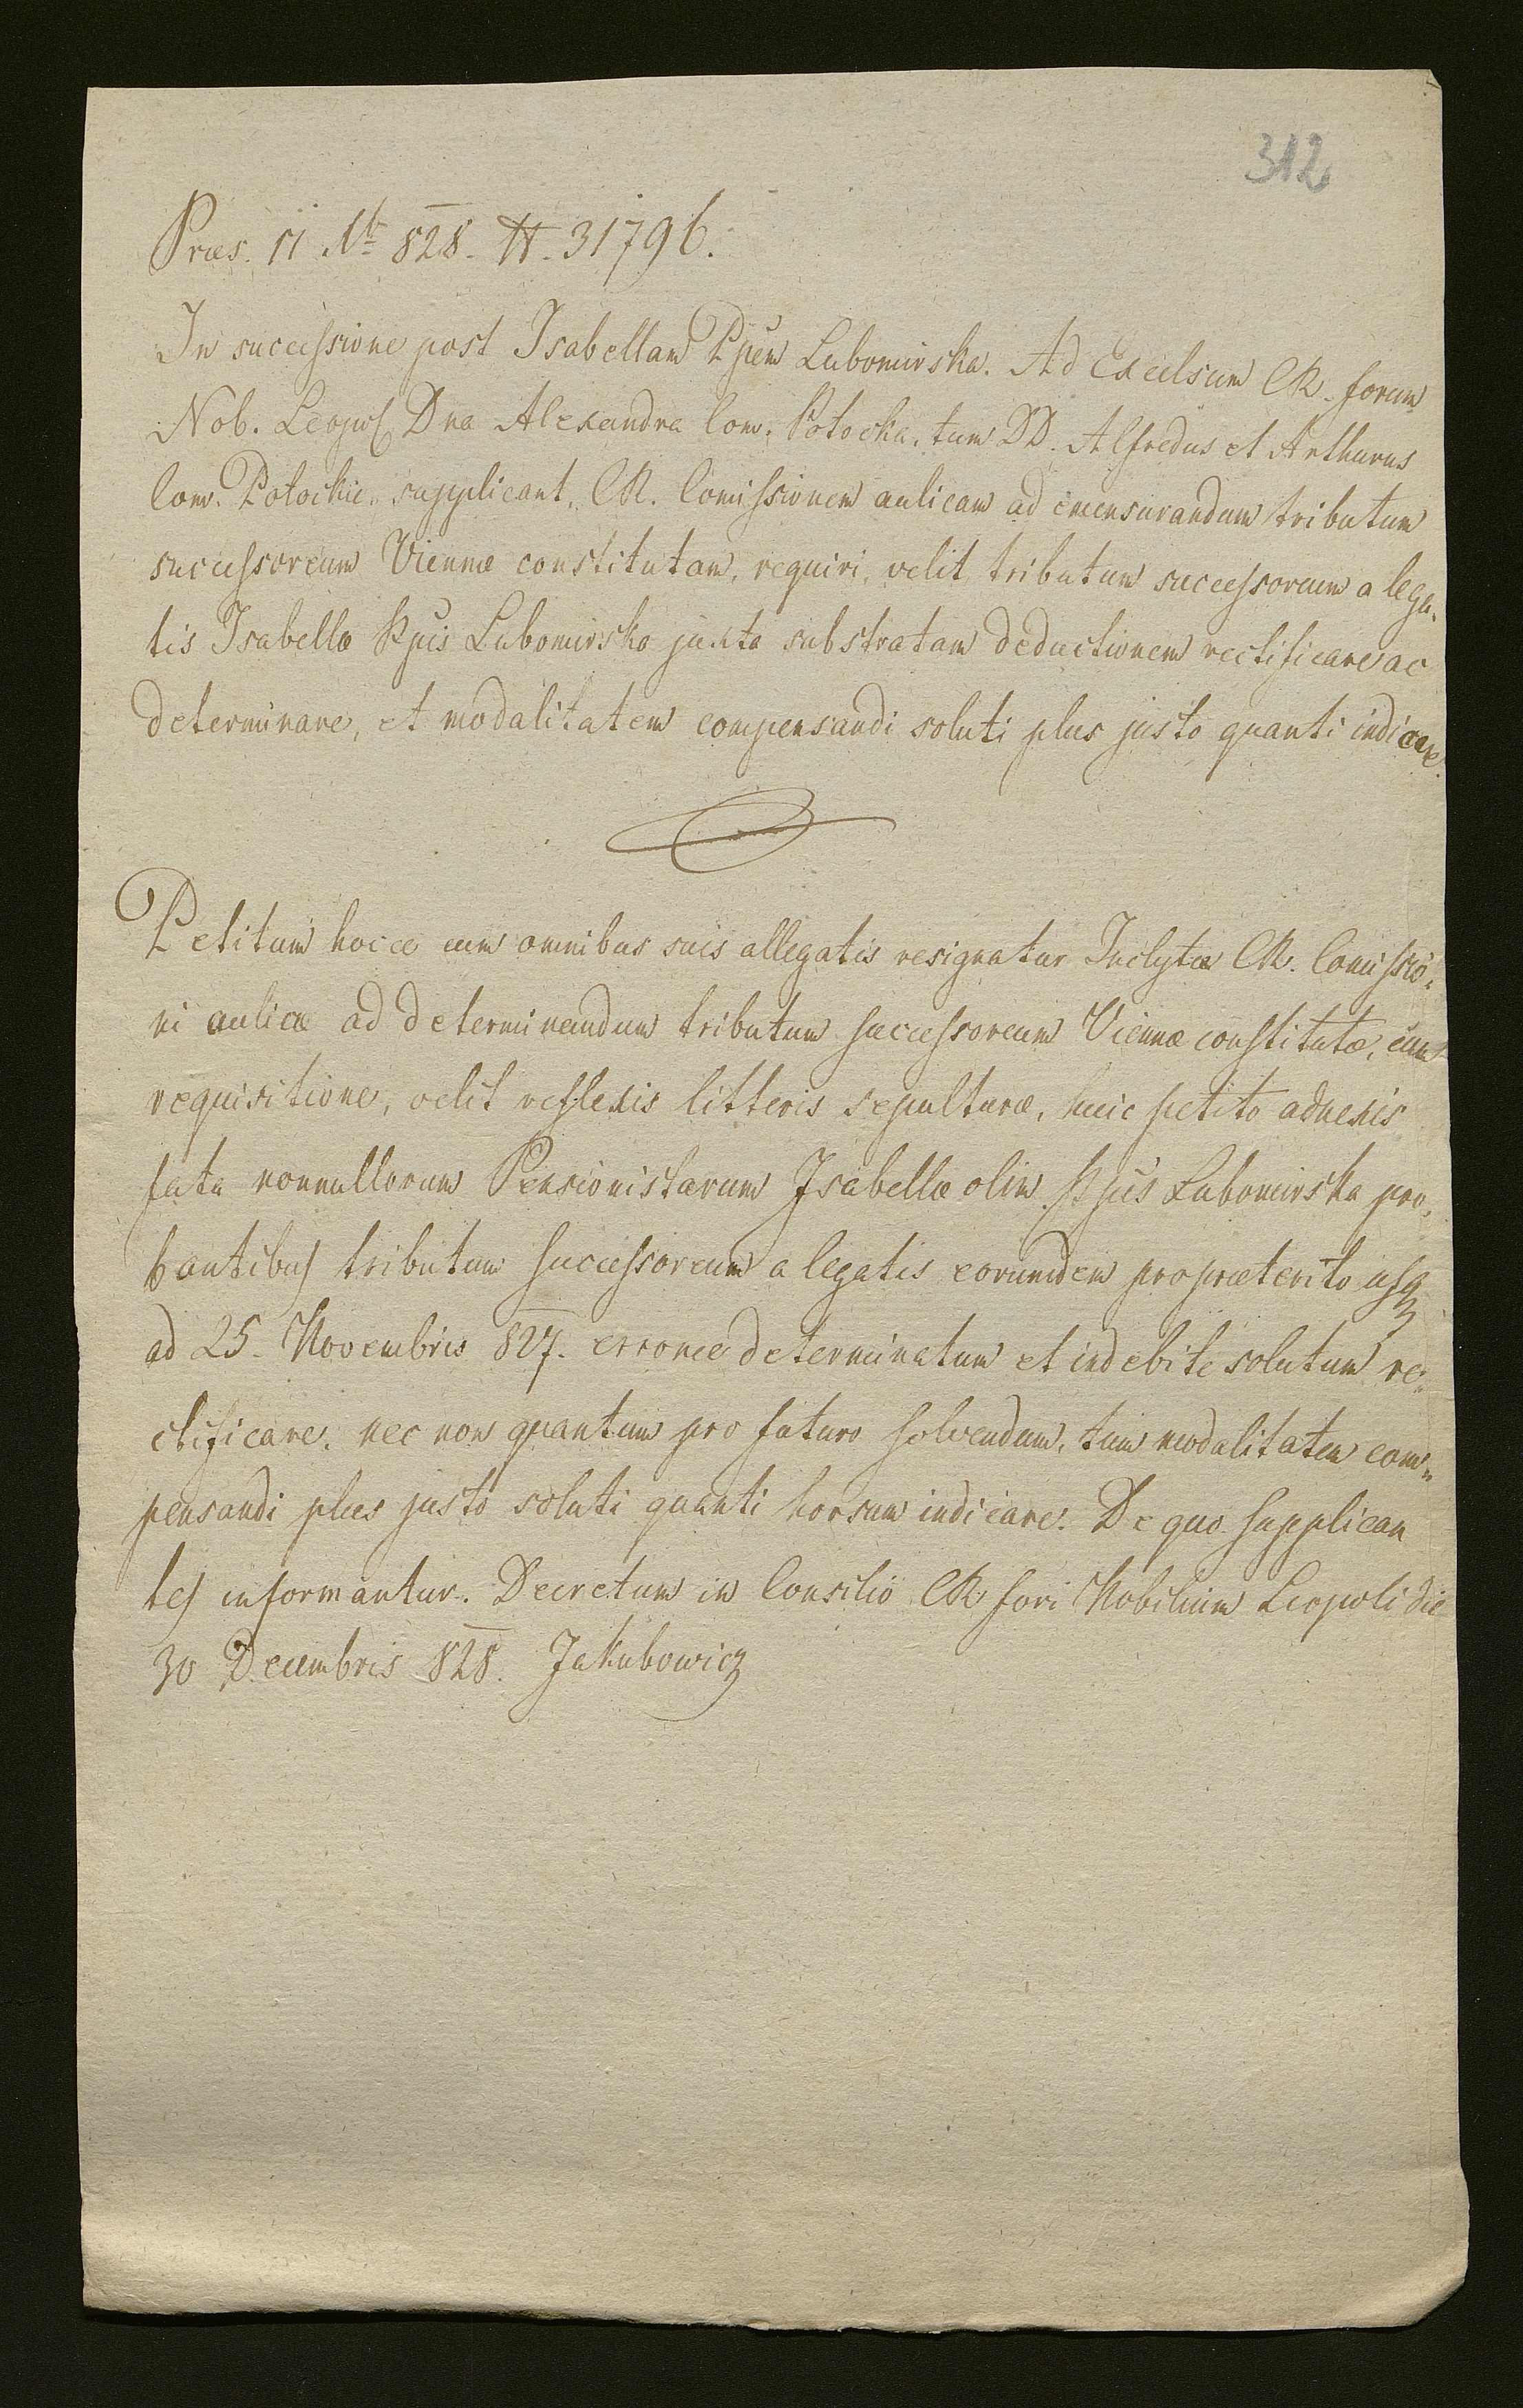 312
Præs. 11 Xbr 828. N. 31796.
In successione post Isabellam Ppem Lubomirska. Ad Excelsum CR. forum
Nob. Leopol Dna Alexandra Com. Potocka, tum DD. Alfredus et Arthurus
Com. Potockie, supplicant, CR. Comissionem aulicam ad emensurandum tributum
successoreum Viennæ constitutam, requiri, velit tributum successoreum a lega„
tis Isabellæ Ppis Lubomirska juxta substratam deductionem rectificare ac
determinare, et modalitatem compensandi soluti plus justo quanti indicare.
Petitum hocce cum omnibus suis allegatis resignatur Inclytæ CR. Comissio„
ni aulicæ ad determinandum tributum successoreum Viennæ constitutæ, cum
requisitione, velit reflexis litteris sepulturæ, huic petito adnexis
fata nonnullorum Pensionistarum Isabellæ olim Ppis Lubomirska pro„
bantibus tributum successoreum a legatis eorumdem pro præterito usq
ad 25. Novembris 827. erronee determinatum et indebite solutum re„
ctificare, nec non quantum pro futuro solvendum, tum modalitatem com„
pensandi plus justo soluti quanti horsum indicare. De quo supplican
tes informantur. Decretum in Consilio CR fori Nobilium Leopoli die
30 Decembris 828. Jakubowicz